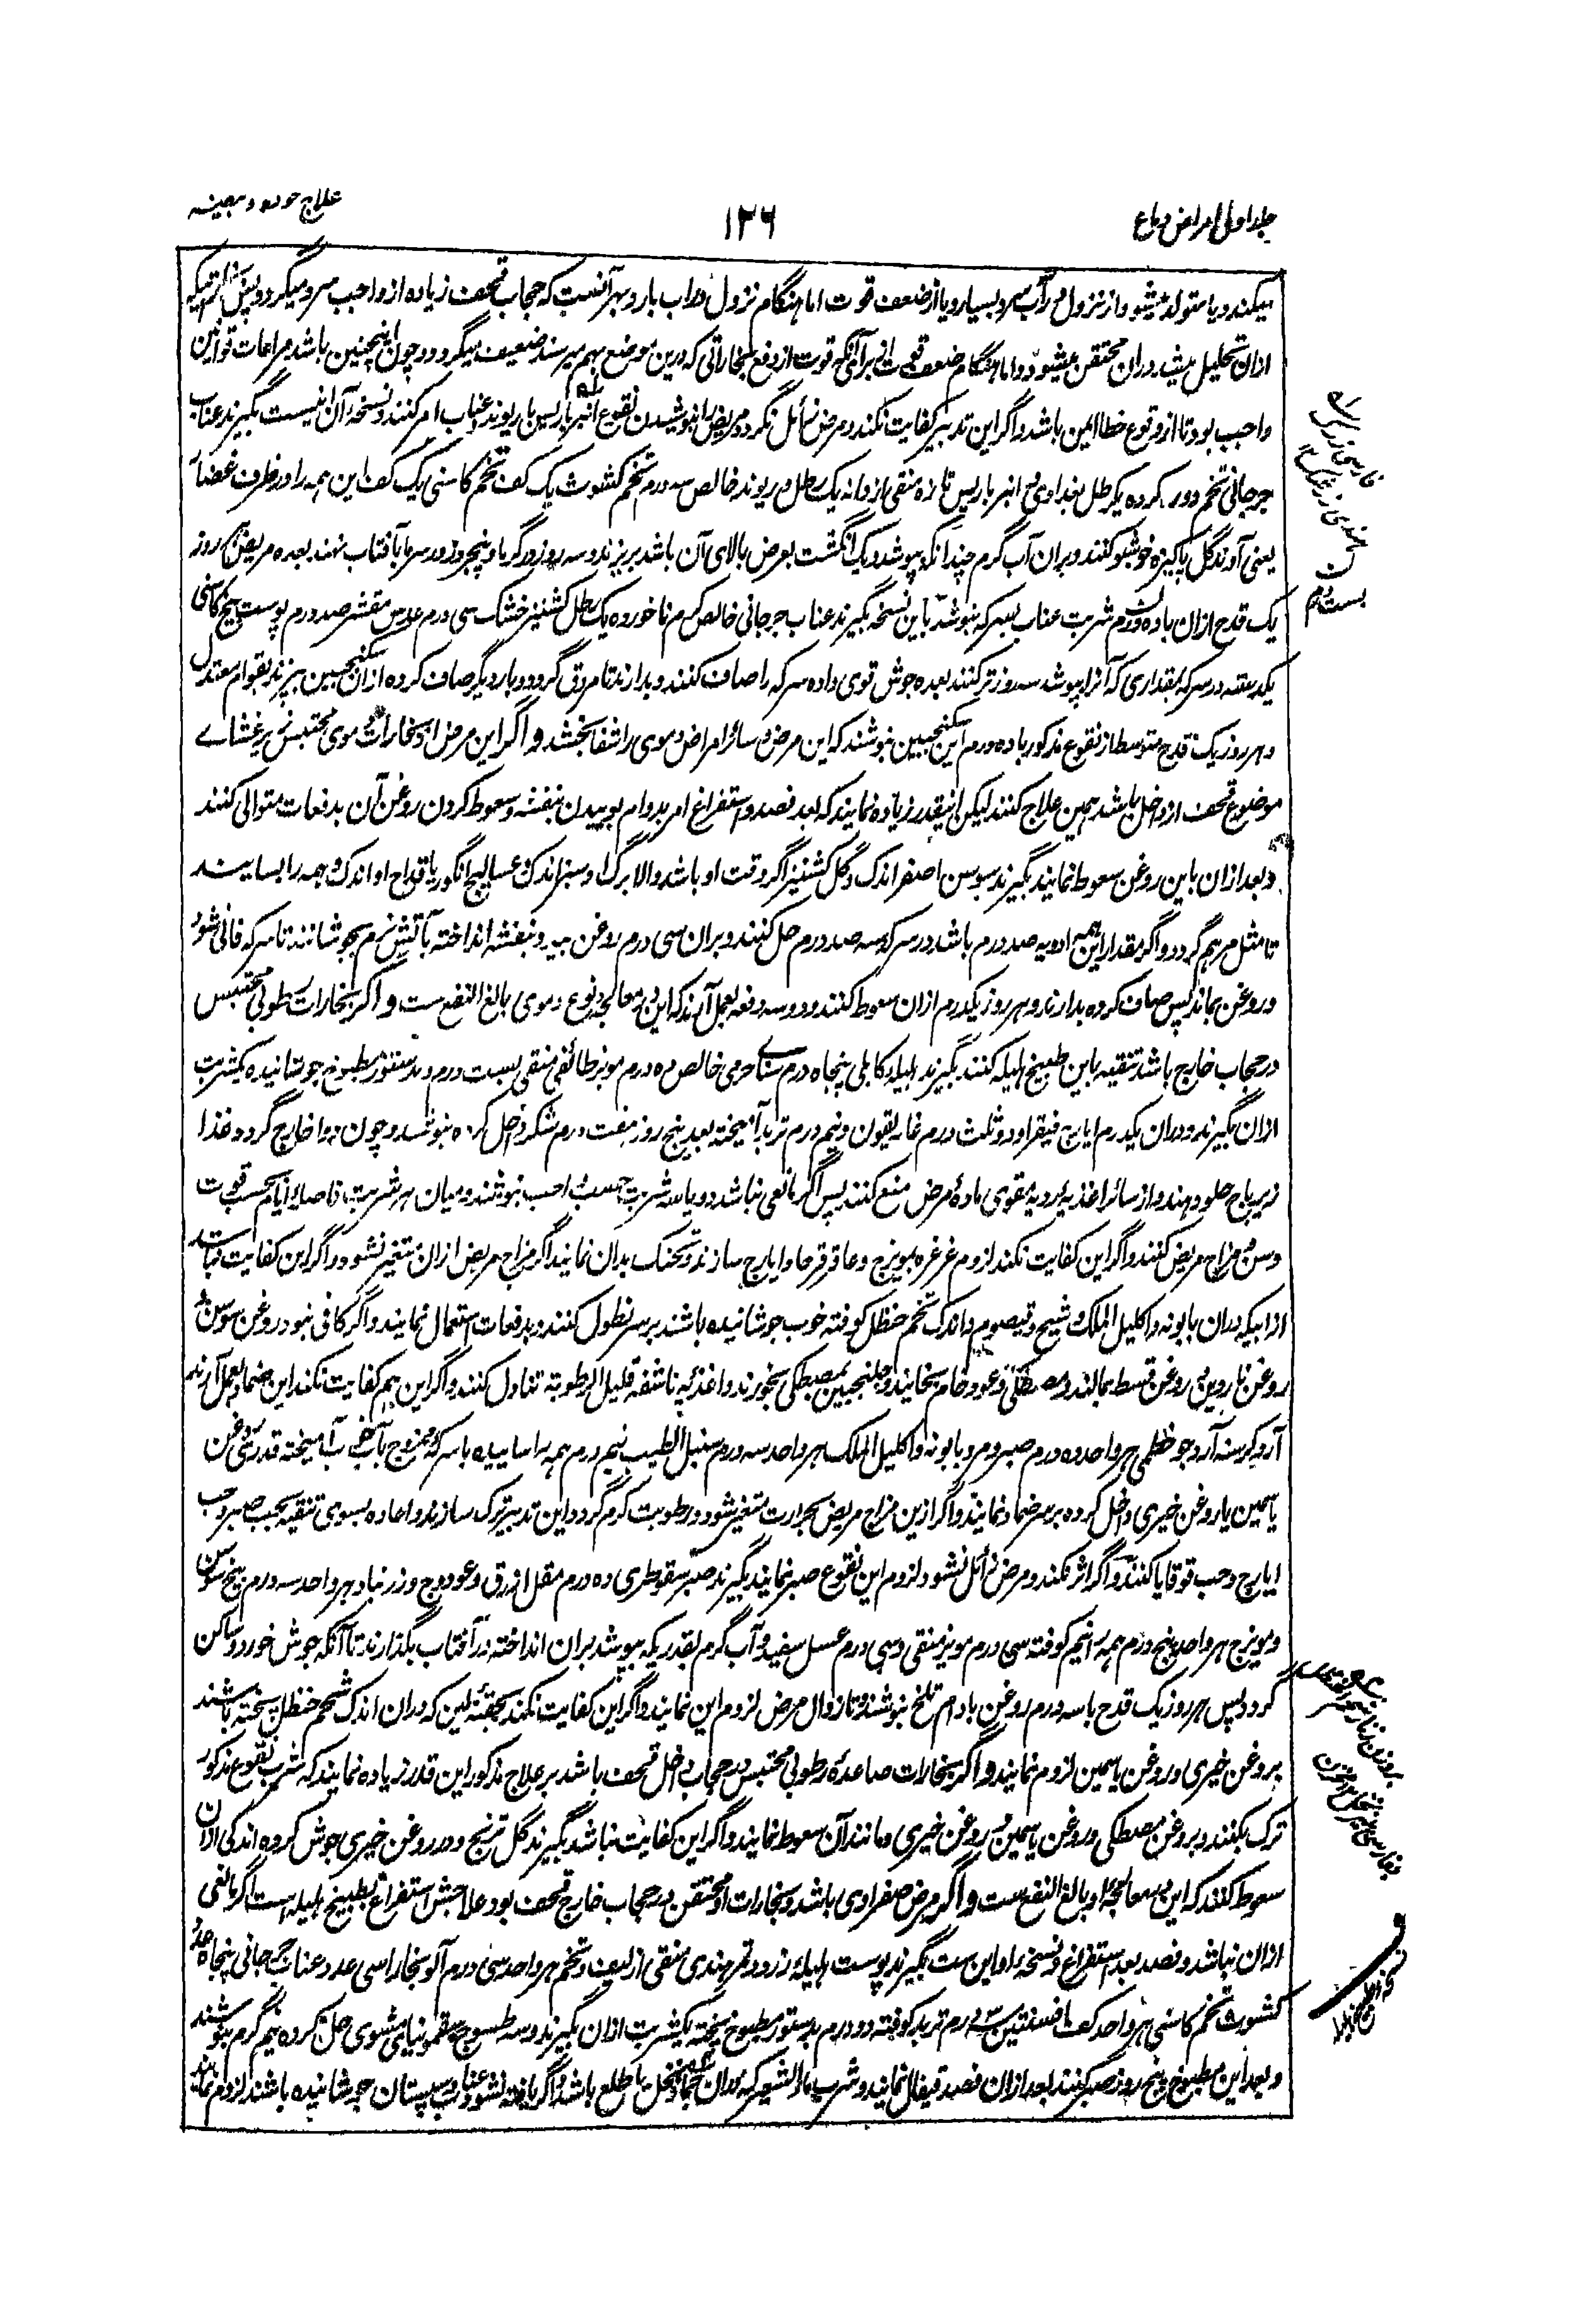 جلد اول امراض دماغ
۱۲۶
علاج خوده و بیضه
میکند و یا متولد میشود از نزول در آب سرد بسیار و یا از ضعف قوت اما هنگام نزول در آب بارد بهر آنست که حجاب قحف زیاده از واجب سرد میگردد پس
ازان تحلیل میشد دران محتقن میشود و اما هنگام ضعف قوت از برای آنکه قوت از دفع بخاراتی که درین موضع بهم میرسند ضعیف میگردد و چون اینچنین باشد مراعات قوانین
واجب بود تا از وقوع خطا ایمن باشد و اگر این تدبیر کفایت نکند و مرض زائل نگردد مریض را بنوشیدن نقوع انبرباریس با ریوند و عناب امر کنند و نسخه آن اینست بگیرند عناب
جرجانی تخم دور کرده یکرطل بغدادی و انبرباریس تازه منقی از دانه یک رطل و ریوند خالص سه درم تخم کشوث یک کف تخم کاسنی یک کف این همه را در ظرف غضار
یعنی آوند گل پاکیزه خوشبو کنند و بران آب گرم چندانکه بپوشد و یک انگشت بعرض بالای آن باشد بریزند و سه روز در گرما و پنجروز در سرما بآفتاب نهند بعده مریض هر روز
یک قدح ازان با ده درم شربت عناب بسرکه بنوشد باین نسخه بگیرند عناب جرجانی خالص کرم ناخورده یک رطل کشنیز خشک سی درم عدس مقشر صد درم پوست بیخ کاسنی
یکدسته در سرکه بمقداری که آنرا بپوشد سه روز تر کنند بعده جوش قوی داده سرکه را صاف کنند و بدارند تا مروق گردد و بار دیگر صاف کرده ازان سکنجبین بپزند بقوام معتدل
و هر روز یک قدح متوسط از نقوع مذکور با ده درم این سکنجبین بنوشند که این مرض و سائر امراض دموی را شفا بخشد و اگر این مرض از بخارات دموی محتبس زیر غشاے
موضوع قحف از داخل باشد همین علاج کنند لیکن اینقدر زیاده نمایند که بعد فصد و استفراغ امر بدوام بوییدن بنفشه و سعوط کردن روغن آن بدفعات متوالی کنند
و بعد ازان باین روغن سعوط نمایند بگیرند سوسن اصفر اندک و گل کشنیز اگر وقت او باشد والا برگ او سبز اندک و عسالیج انگور یا قداح او اندک و همه را بسایند
تا مثل مرهم گردد و اگر مقدار این همه ادویه صد درم باشد در سرکه سه صد درم حل کنند و بران سی درم روغن بید و بنفشه انداخته بآتش نرم بجوشانند تا سرکه فانی شود
و روغن بماند پس صاف کرده بدارند و هر روز یکدرم ازان سعوط کنند و دو سه دفعه بعمل آرند که این در معالجه نوع دموی بالغ النفع ست و اگر بخارات رطوبی محتبس
در حجاب خارج باشد تنقیه باین طبیخ هلیله کنند بگیرند هلیله کابلی پنجاه درم سناے حرمی خالص ده درم مویز طائفی منقی بیست درم و بدستور مطبوخ جوشانیده یکشربت
ازان بگیرند و دران یکدرم ایارج فیقرا و دو ثلث درم غاریقون و نیم درم تربد آمیخته بعد پنج روز هفت درم شکر داخل کرده بنوشند و چون دوا خارج گردد غذا
زیرباج حلو دهند و از سائر اغذیه ردیه مقوی ماده مرض منع کنند پس اگر مانعی نباشد دو یا سه شربت حسب واجب بنوشند و میان هر شربت فاصله ایام بحسب قوت
و سن و مزاج مریض کنند و اگر این کفایت نکند لزوم غرغره بمویزج و عاقرقرحا و ایارج سازند و تحنیک بدان نمایند اگر مزاج مریض ازان متغیر نشود و اگر این کفایت نباشد
از آبیکه دران بابونه و اکلیل الملک و شیح و قیصوم و اندک تخم حنظل کوفته خوب جوشانیده باشند بر سر نطول کنند و بدفعات استعمال نمایند و اگر کافی نبود روغن سوسن و
روغن ناردین و روغن قسط بمالند و مصطکی و عود خام بخایند و جلنجبین بمصطکی بخورند و اغذیه ناشفه قلیل الرطوبه تناول کنند و اگر این هم کفایت نکند این ضماد بعمل آرند
آرد کرسنه آرد جو خطمی هر واحد ده درم صبر و مر و بابونه و اکلیل الملک هر واحد سه درم سنبل الطیب نیم درم همه را ساییده با سرکه ممزوج بآب آمیخته قدری روغن
یاسمین یا روغن خیری داخل کرده بر سر ضماد نمایند و اگر ازین مزاج مریض بحرارت متغیر شود و رطوبت گرم گردد این تدبیر ترک سازند و اعاده بسوی تنقیه بحب صبر و حب
ایارج و حب قوقایا کنند و اگر اثر نکند و مرض زائل نشود لزوم این نقوع صبر نمایند بگیرند صبر سقوطری ده درم مقل ازرق و عود وج و زرنباد هر واحد سه درم بیخ سوسن
و مویزج هر واحد پنج درم همه را نیم کوفته سی درم مویز منقی و سی درم عسل سفید و آب گرم بقدریکه بپوشد بران انداخته در آفتاب بگذارند تا آنکه جوش خورد و ساکن
گردد پس هر روز یک قدح با سه درم روغن بادام تلخ بنوشند و تا زوال مرض لزوم این نمایند و اگر این کفایت نکند بحقنه لین که دران اندک شحم حنظل پخته باشند
بروغن خیری و روغن یاسمین لزوم نمایند و اگر بخارات صاعده رطوبی محتبس در حجاب داخل قحف باشد بر علاج مذکور این قدر زیاده نمایند که شرب نقوع مذکور
ترک بکنند و بروغن مصطکی و روغن یاسمین و روغن خیری و مانند آن سعوط نمایند و اگر این کفایت نباشد بگیرند گل ترنج و در روغن خیری جوش کرده اندکی ازان
سعوط کنند که این در معالجه او بالغ النفع ست و اگر مرض صفراوی باشد و بخارات او محتقن در حجاب خارج قحف بود علاجش استفراغ بطبیخ هلیله است اگر مانعی
ازان نباشد و فصد بعد استفراغ و نسخه او این ست بگیرند پوست هلیله زرد و تمر هندی منقی از لیف و تخم هر واحد سی درم آلو بخارا سی عدد عناب جرجانی پنجاه عدد
کشوث و تخم کاسنی هر واحد کف افسنتین سه درم تربد کوفته دو درم بدستور مطبوخ پخته یکشربت ازان بگیرند و سه طسوج سقمونیای مشوی حل کرده نیم گرم بنوشند
و بعد این مطبوخ پنج روز صبر کنند بعد ازان فصد قیفال نمایند و شرب ماء الشعیر که دران جمار نخل یا طلع باشد و اگر یافته نشود عناب و سپستان جوشانیده باشند لزوم نمایند